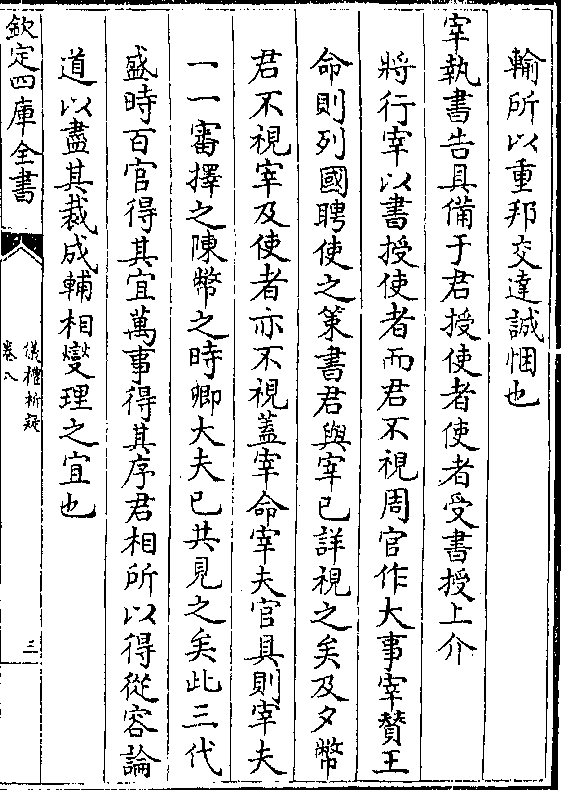 輸所以重邦交達誠悃也
宰執書告具備于君授使者使者受書授上介
將行宰以書授使者而君不視周官作大事宰贊王
命則列國聘使之策書君與宰已詳視之矣及夕幣
君不視宰及使者亦不視蓋宰命宰夫官具則宰夫
一一審擇之陳幣之時卿大夫已共見之矣此三代
盛時百官得其宜萬事得其序君相所以得從容論
道以盡其裁成輔相燮理之宜也
欽定四庫全書
儀禮析疑
卷八
三